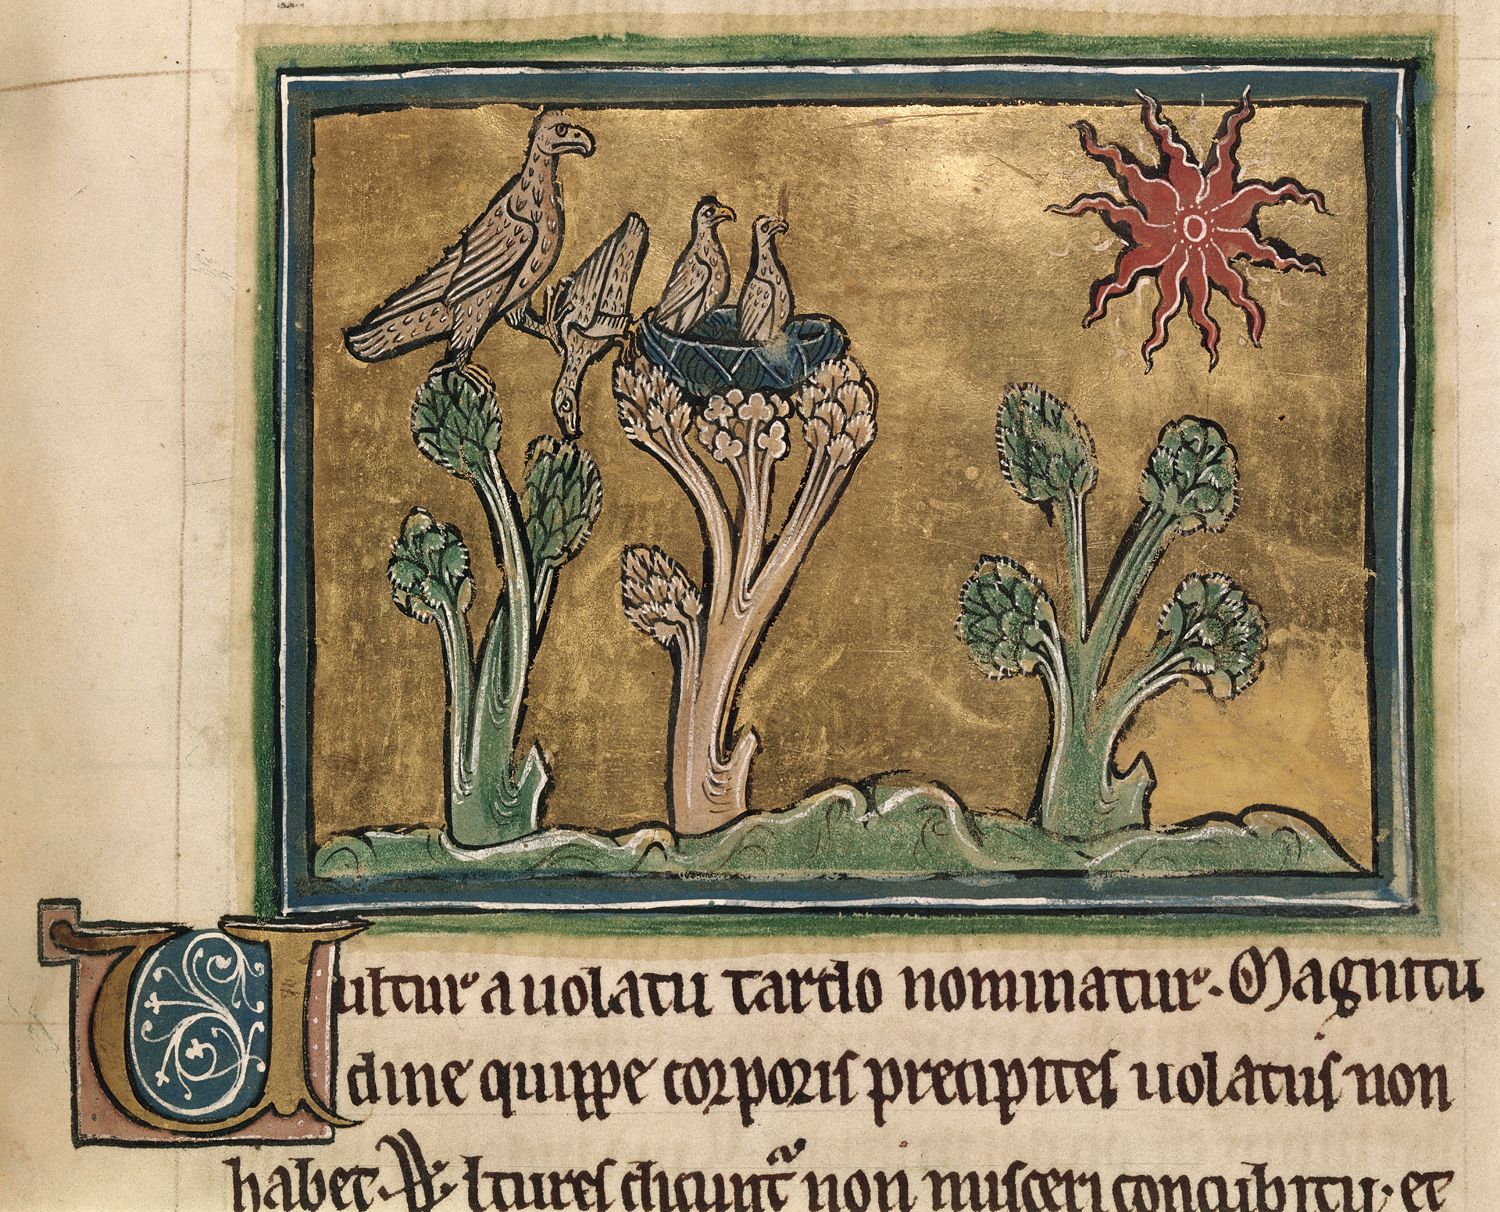 Vultur a uolatu tardo nominatur. Magnitu
dine quippe corporis precipites uolatus non
habet. Vultures dicunt' non misceri concubitu. et